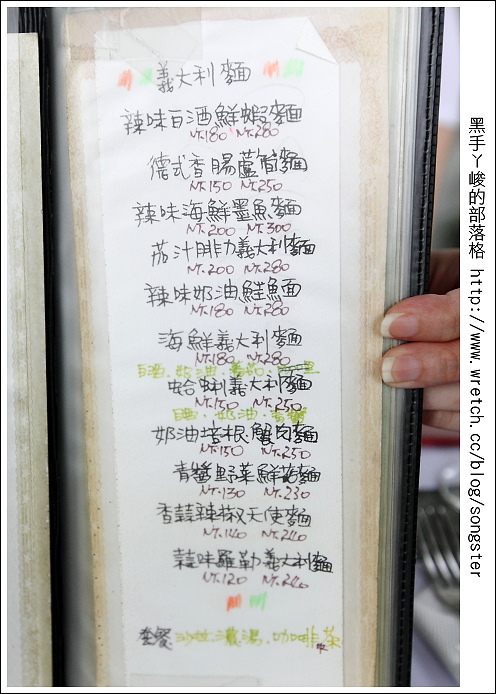 義大利麵
辣味白酒鮮蝦麵
NT.180 NT.280
德式香腸蘆筍麵
NT.150 NT.250
辣味海鮮墨魚麵
NT.200 NT.300
茄汁腓力義大利麵
NT.200 NT.280
辣味奶油鮭魚麵
NT.180 NT.280
海鮮義大利麵
NT.180 NT.280
白酒．奶油．
蛤蜊義大利麵
NT.150 NT.250
白酒．奶油．青醬
奶油培根蟹肉麵
NT.150 NT.250
青醬野菜鮮菇麵
NT.130 NT.230
香蒜辣椒天使麵
NT.140 NT.240
蒜味羅勒義大利麵
NT.120 NT.240
套餐 沙拉．濃湯．咖啡 茶
黑手ㄚ峻的部落格 http://www.wretch.cc/blog/songster